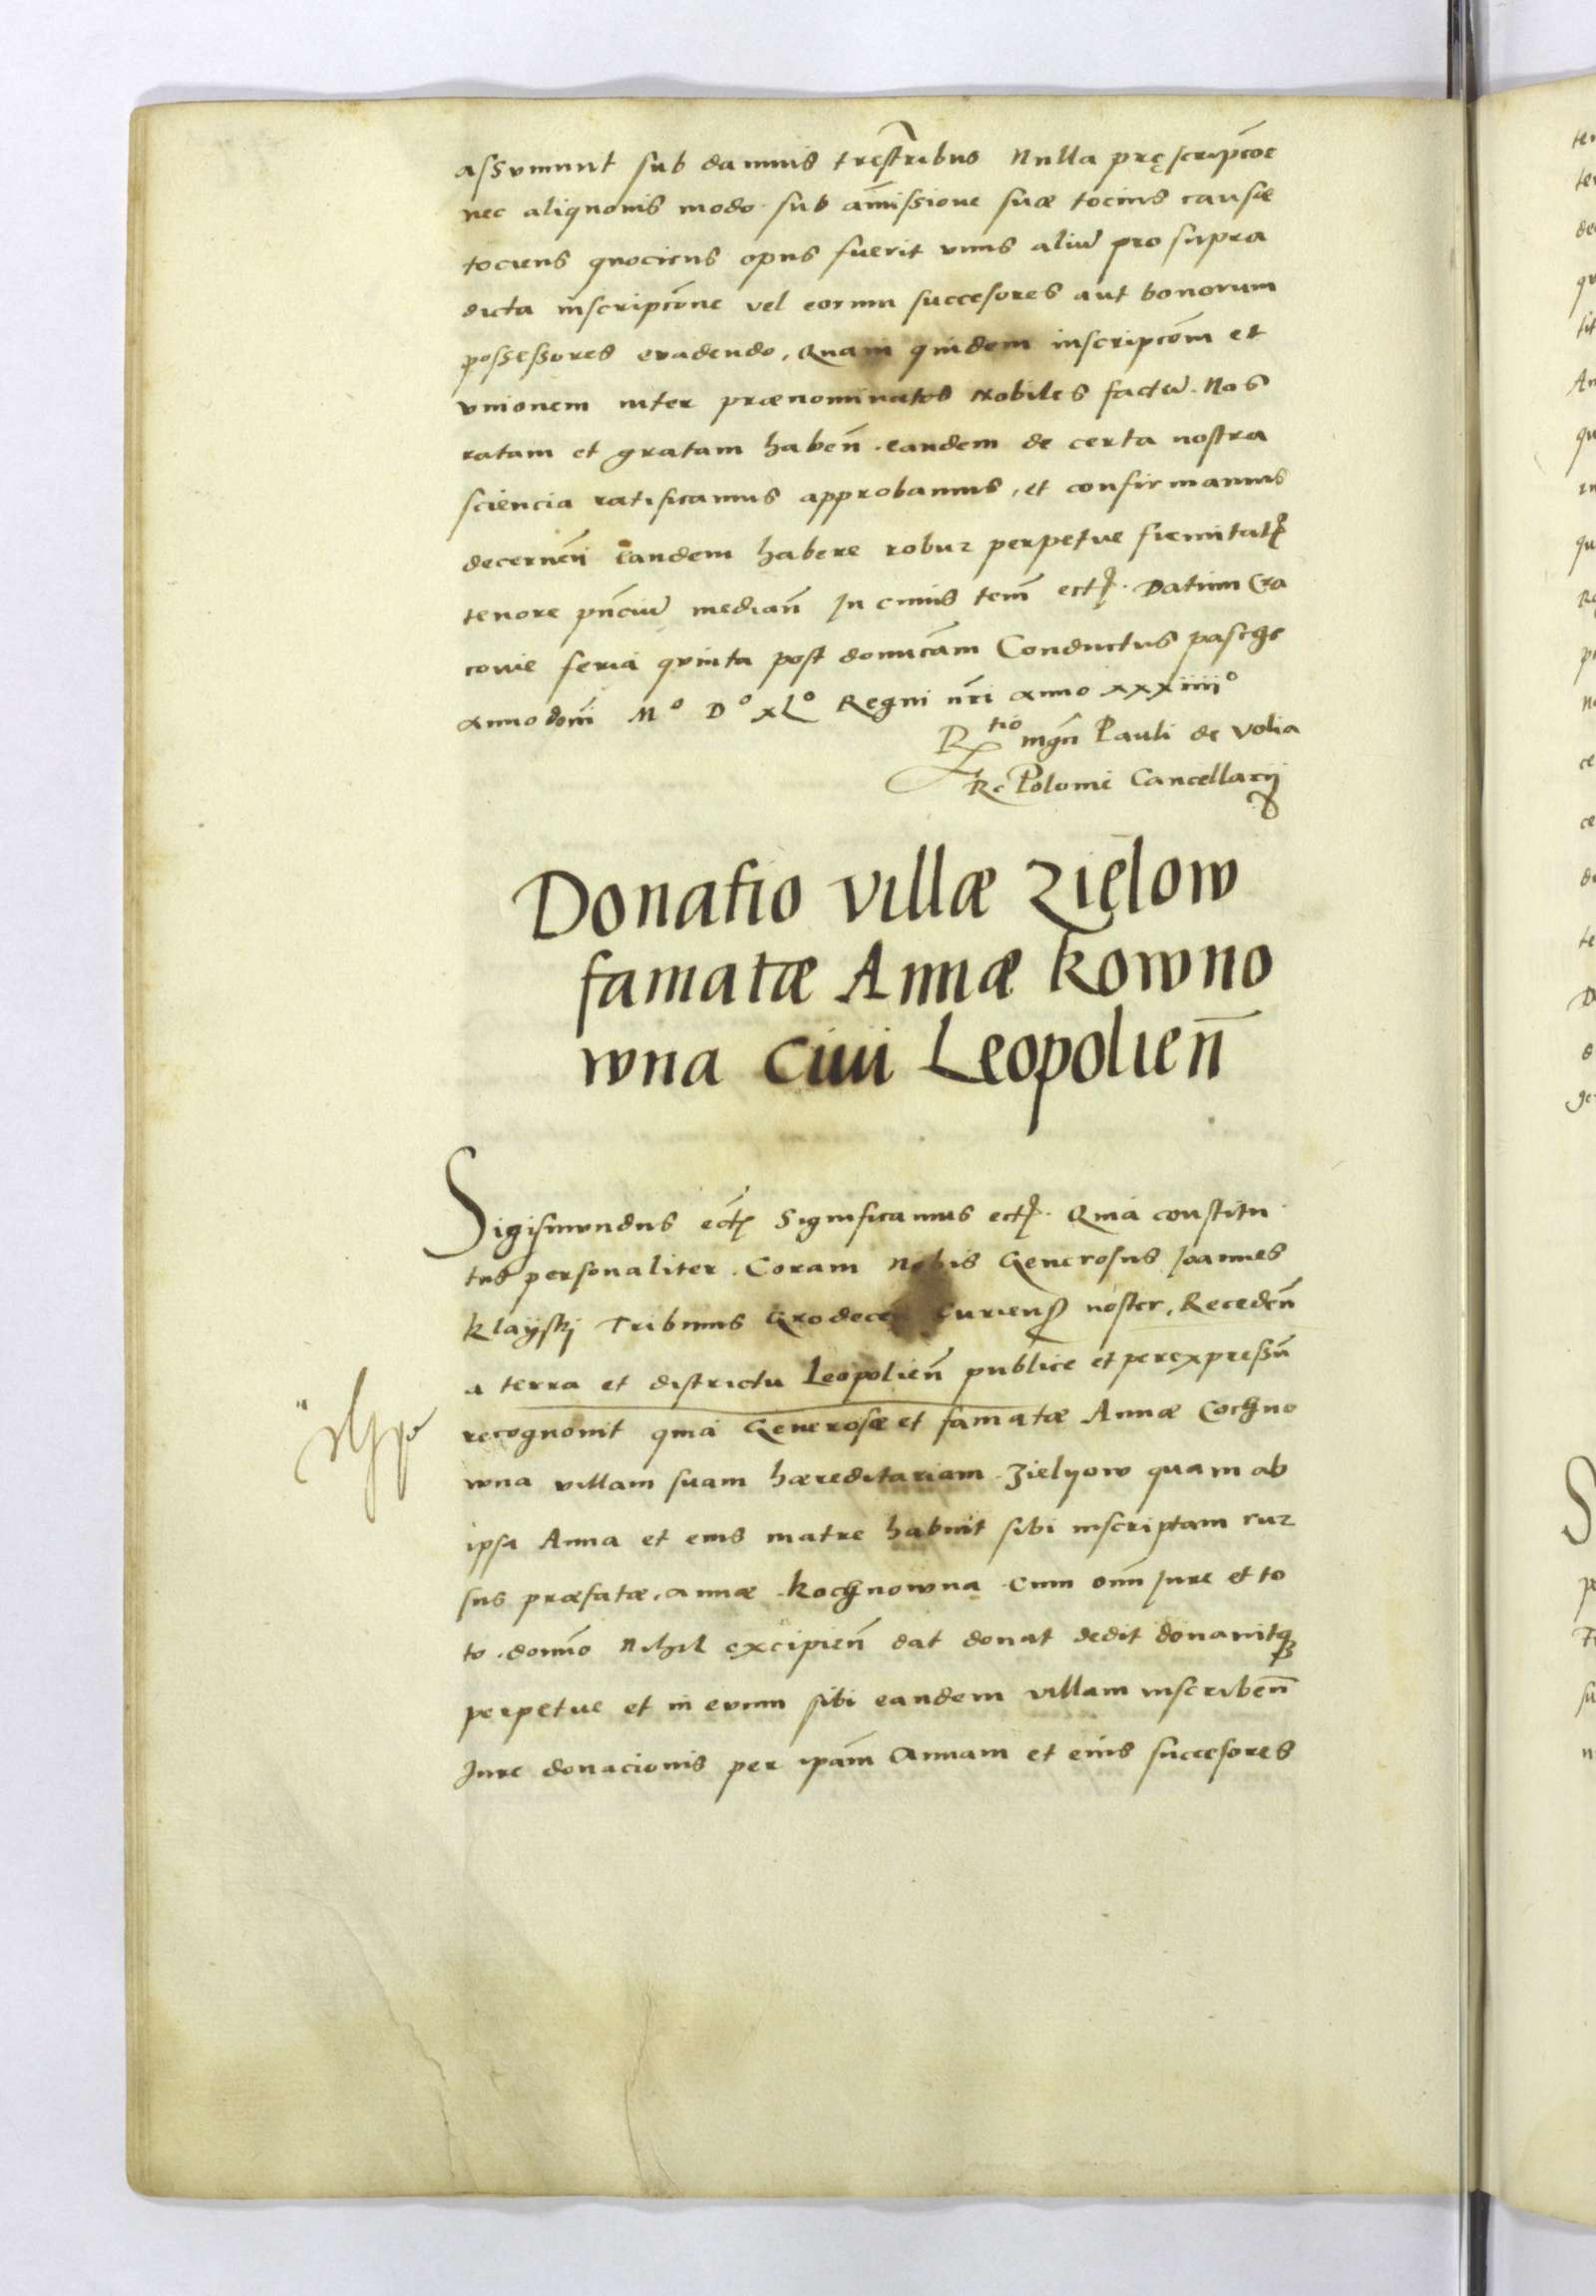 assumunt sub damnis trestribus Nulla pręscripcõe
nec aliquouis modo sub amissione suæ tocius causæ
tociens quociens opus fuerit unus aliũ pro supra
dicta inscripcõne vel eorum succesores aut bonorum
possessores evadendo, Quam quidem inscripcõm et
vnionem inter prænominatos Nobiles factũ. Nos
ratam et gratam habeñ. eandem de certa nostra
sciencia ratificamus approbamus, et confirmamus
decerneñ eandem habere robur perpetue firmitatꝭ
tenore pñciũ mediañ In cuius reim̃ ectꝭ. Datum Cra
covie feria quinta post domicãm Conductus pasche
Anno domĩ Mº Dº xLº Regni nr̃i anno xxxiiiiº
Rtio mgci Pauli de Volia
R. Polonie Cancellarij
Donatio villæ Zięlow
famatæ Annæ Kowno
wna Ciui Leopolieñ
Sigismundus ectꝭ Significamus ectꝭ. Quia constitu
tus personaliter. Coram Nobis Generosus Joannes
Klayskj Tribunus Grodeceñ Curiensꝭ noster, Recedeñ
a terra et districtu Leopolieñ publice et per expressũ
recognouit quia Generosæ et famatæ Annæ Cochno
wna villam suam hæreditariam Zielyow quam ab
ipsa Anna et eius matre habuit sibi inscriptam rur
sus præfatæ, annæ Kochnowna Cum om̃i Jure et to
to, domĩo Nihil excipieñ dat donat dedit donauitqꝫ
perpetue et in evum sibi eandem villam inscribeñ
Jure donacionis per ipãm Annam et eius succesores